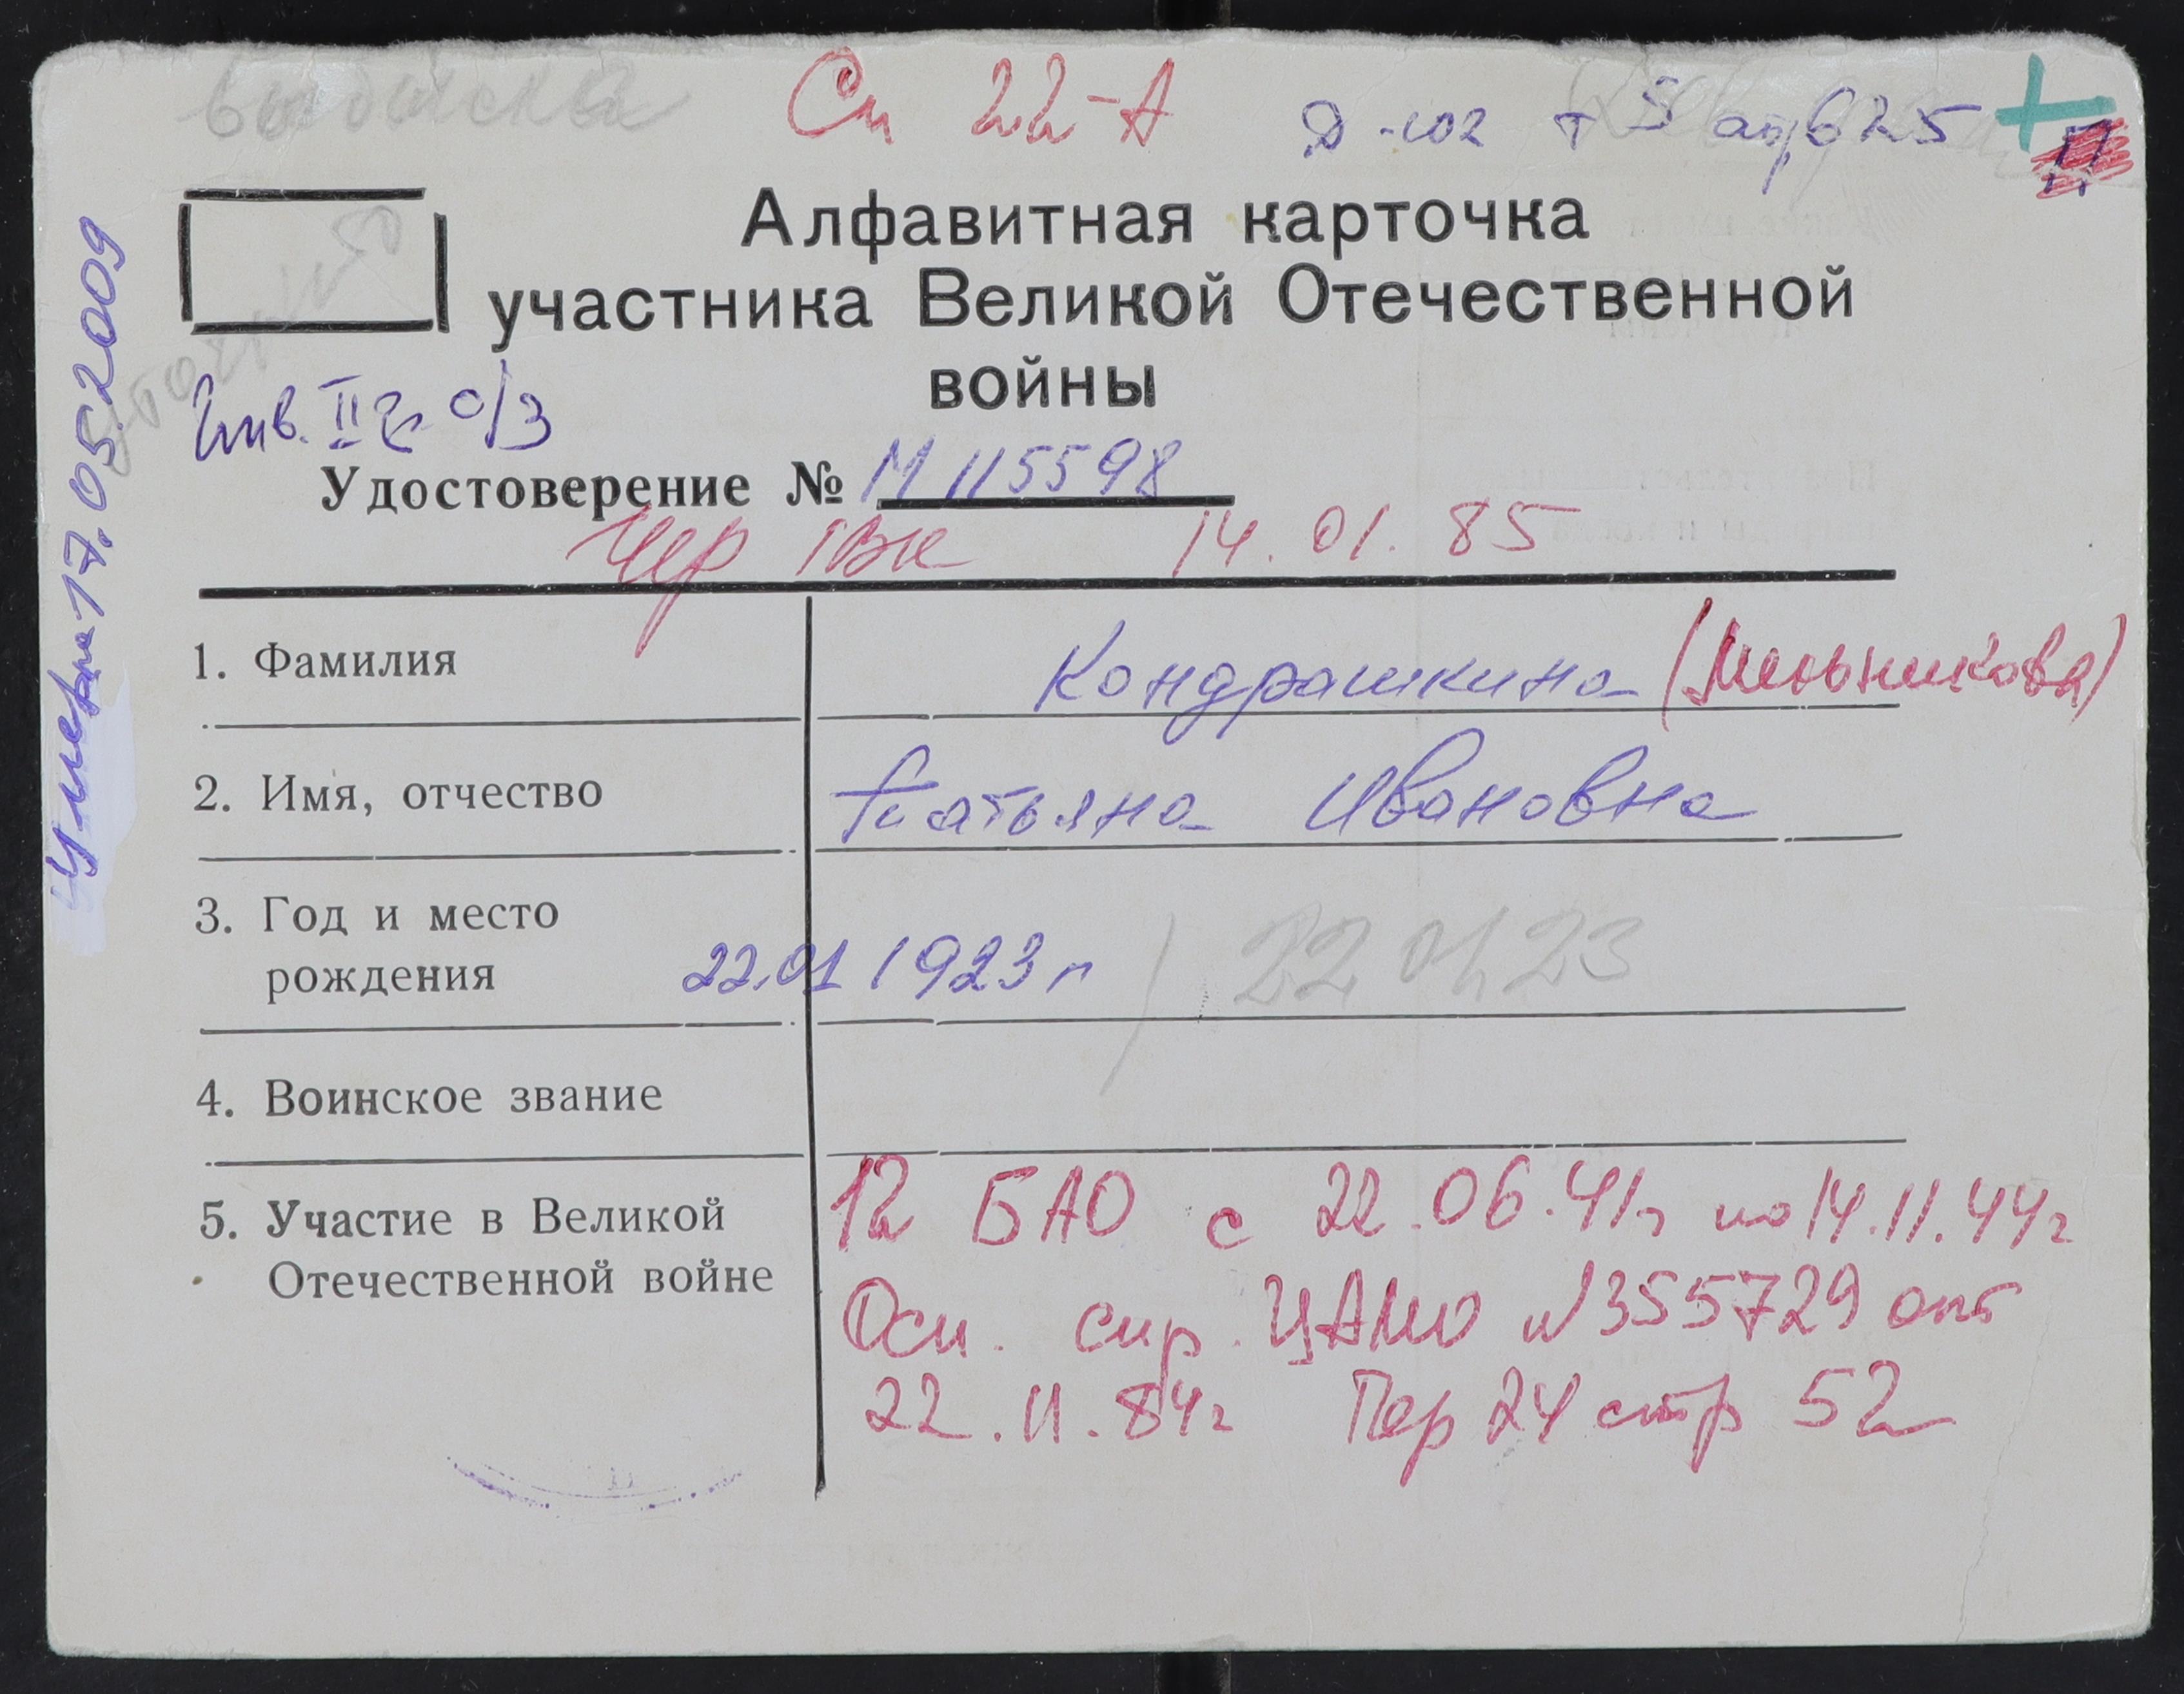 Сп 22-А
Д-102 т 5 ап, 625
Алфавитная карточка
участника Великой Отечественной
войны
Инв. II г о/з
Удостоверение № М 115598
Чер РВК 14.01.85
умерла 17.05.2009
1. Фамилия Кондрашкина (Мельникова)
2. Имя, отчество Татьяна Ивановна
3. Год и место
рождения 22.01 1923 г / 22 01 23
4. Воинское звание
5. Участие в Великой 12 БАО с 22.06.41г по 14.11.44г
Отечественной войне Осн. спр. ЦАМО №355729 от
22.11.84г Пер 24 стр 52